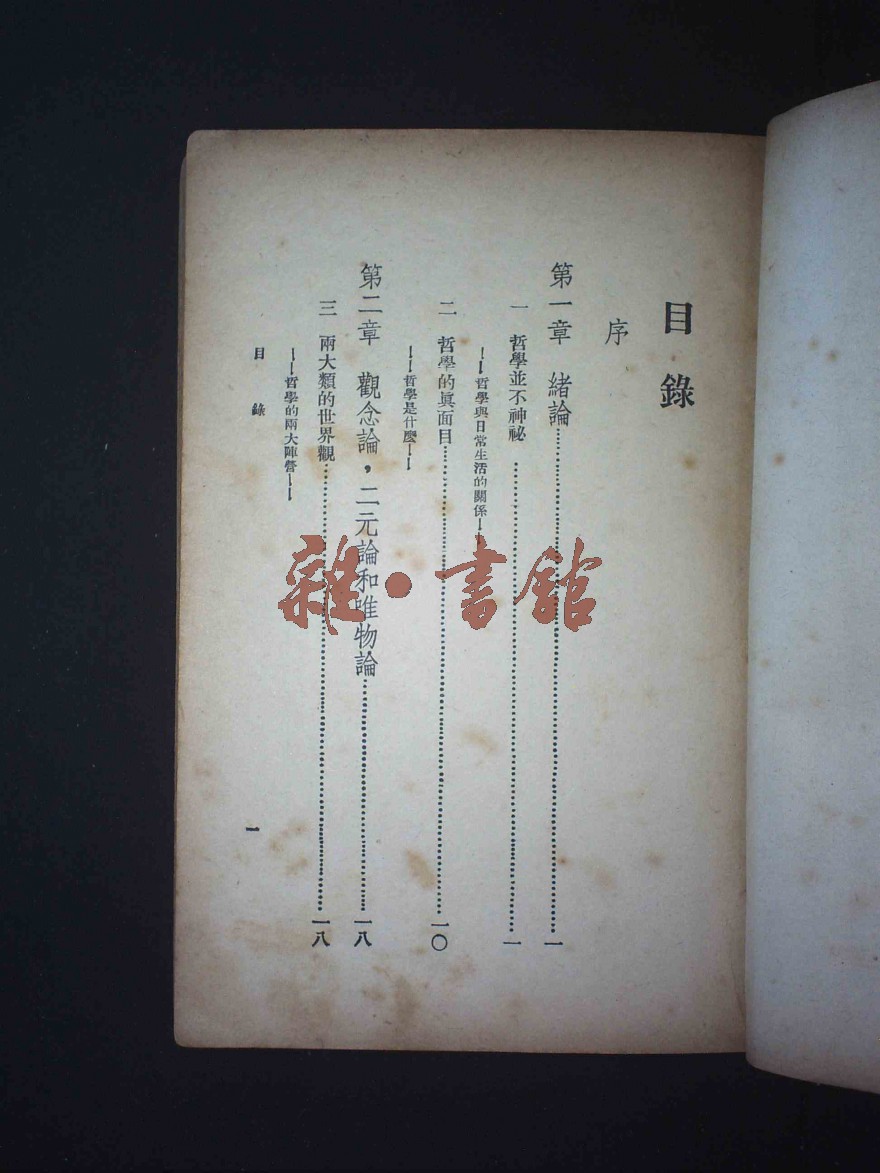 目錄
序
第一章 緒論……一
一 哲學並不神祕……一
——哲學與日常生活的關係——
二 哲學的眞面目……一〇
——哲學是什麼——
第二章 觀念論，二元論和唯物論……一八
三 兩大類的世界觀……一八
——哲學的兩大陣營——
目錄
一
雜·書館